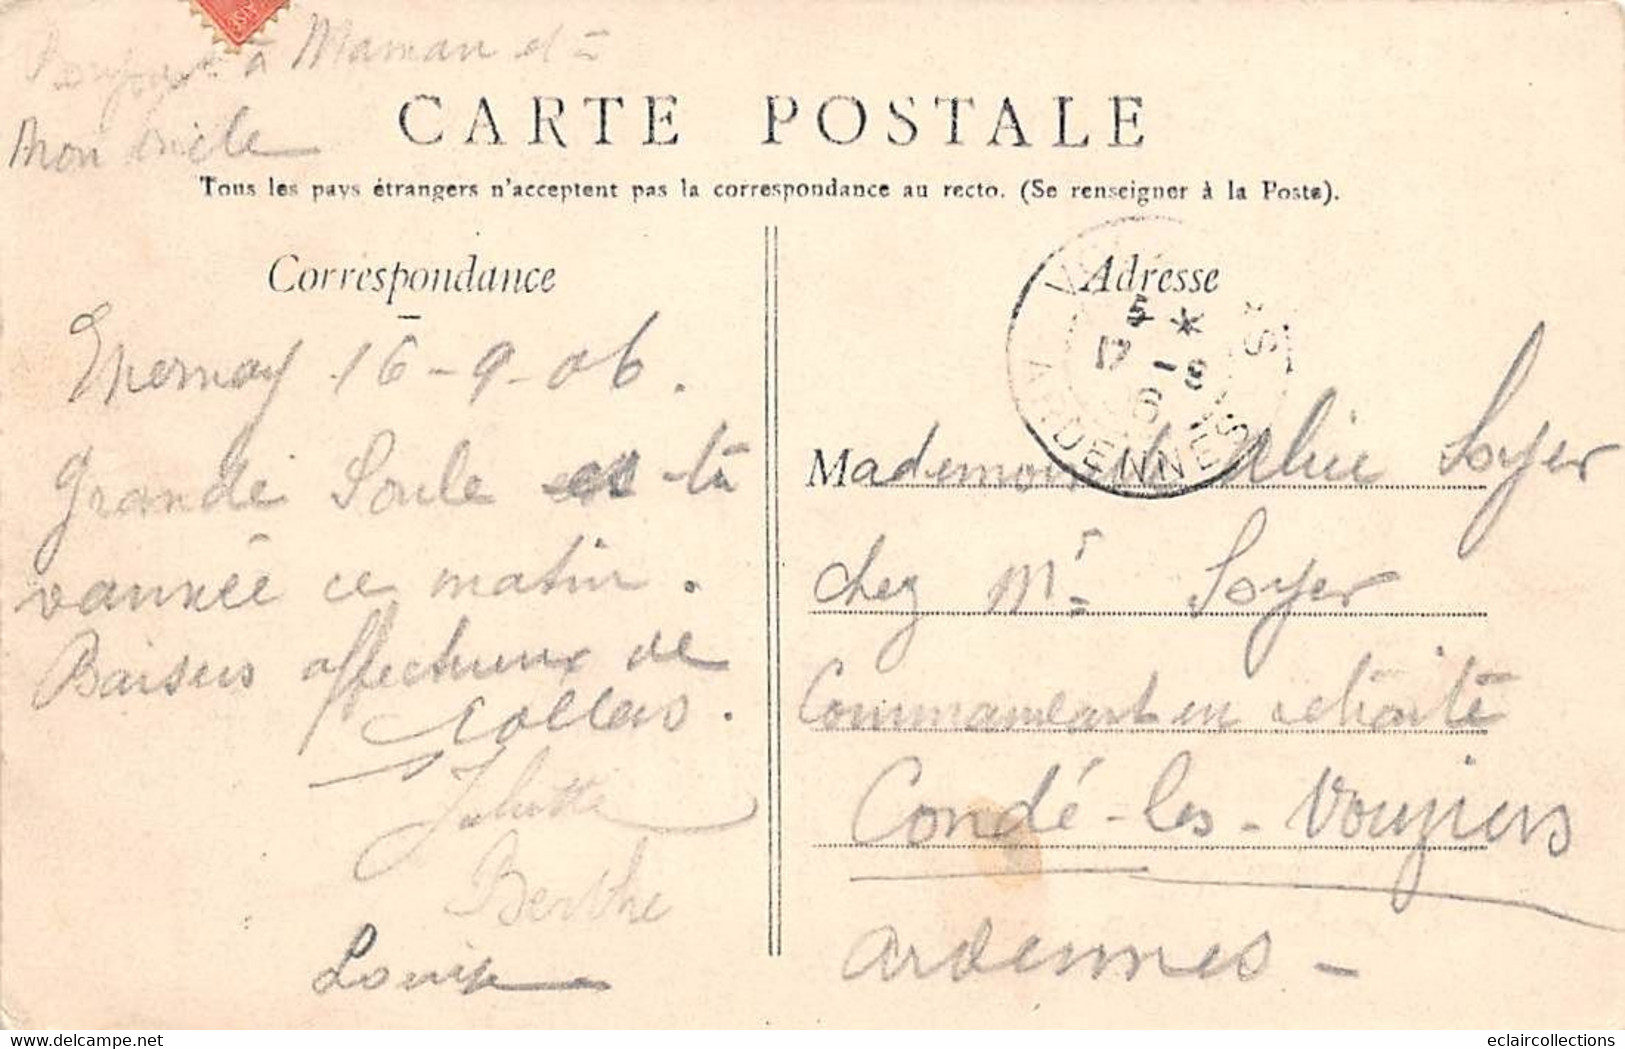 à Maman et
Mon oncle
CARTE POSTALE
Tous les pays étrangers n'acceptent pas la correspondance au recto. (Se renseigner à la Poste).
Correspondance
Epernay 16-9-06.
Grande Soule est là
vannée ce matin.
Baisers affectueux de
Juliette
Berthe
Louise
Adresse
5 *
17 -9
6
ARDENNES
Mademoiselle Alice Soyer
chez Mr Soyer
Commandant en retraite
Condé-les-Vouziers
Ardennes-
eclaircollections
www.delcampe.net